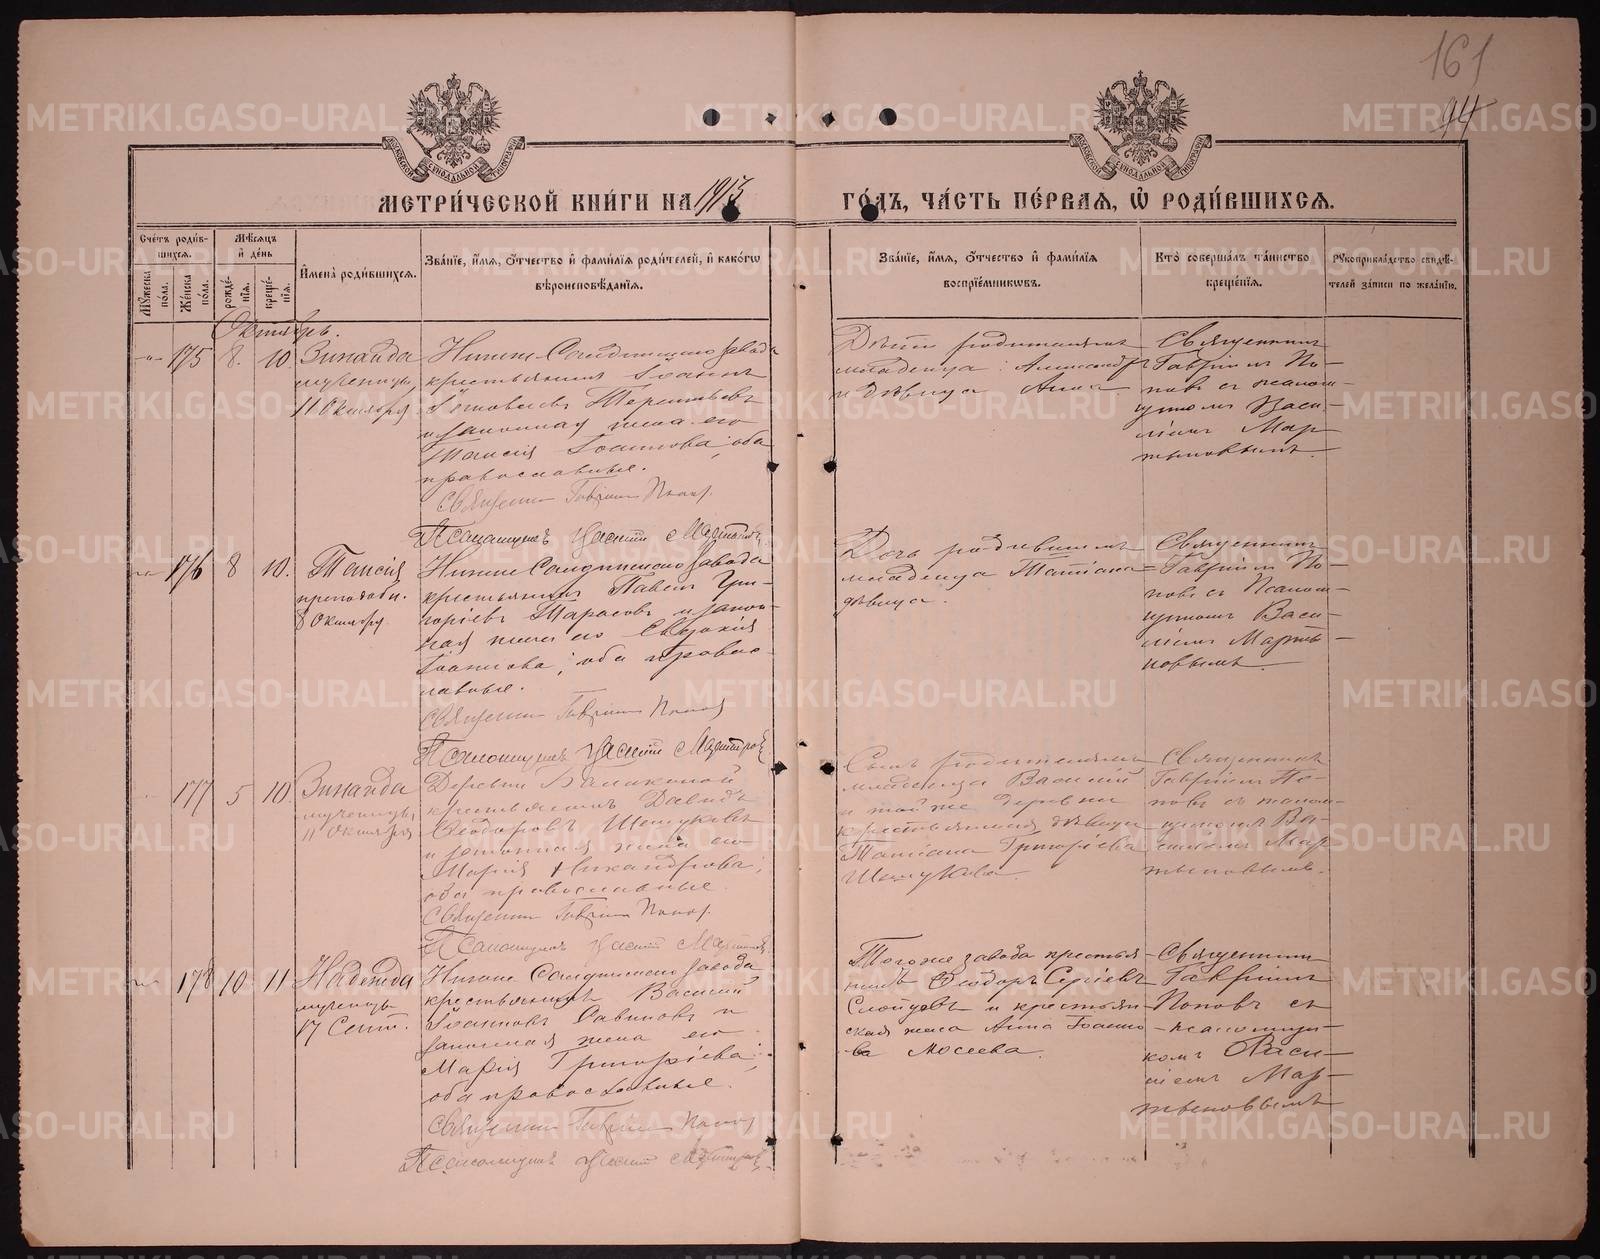 161
94
МОСКОВСКОЙ СѴНОДАЛЬНОЙ ТИПОГРАФІИ
МОСКОВСКОЙ СѴНОДАЛЬНОЙ ТИПОГРАФІИ
МЕТРИ́ЧЕСКОЙ КНИ́ГИ НА 1915 ГО́ДЪ, ЧА́СТЬ ПЕ́РВАЯ, Ѡ РОДИ́ВШИХСЯ.
Сче́тъ роди́в-
шихся.
Мѣ́сяцъ
и де́нь
Мꙋ́жеска по́ла.
Же́нска по́ла.
рожде́-
нїѧ.
креще́-
нїѧ.
И҆мена̀ роди́вшихся.
Зва́нїе, и҆́мѧ, ѻ҆́тчество и҆ фами́лїѧ роди́телей, и҆ како́гѡ
вѣроисповѣ́данїѧ.
Зва́нїе, и҆́мѧ, ѻ҆́тчество и҆ фами́лїѧ
воспрїе́мникѡвъ.
Кто̀ соверша́лъ та́инство
креще́нїѧ.
Рꙋкоприкла́дство свидѣ́-
телей за́писи по жела́нїю.
Октябрь.
175 8. 10. Зинаида
мученицы
11 Октября
Нижне-Салдинскаго завода
крестьянинъ Іоаннъ
Терентьевъ
и законная жена его
Таисія Іоаннова; оба
православные.
Священникъ Гавріилъ Поповъ
Псаломщикъ Василій Мартыновъ
Дѣти родителей
младенца: Александръ
и дѣвица Анна.
Священникъ
Гавріилъ По-
повъ съ псалом-
щикомъ Васи-
ліемъ Мар-
тыновымъ.
176 8 10. Таисія
преподобн.
8 Октября
Нижне-Салдинскаго завода
крестьянинъ Павелъ Гри-
горіевъ Тарасовъ и закон-
ная жена его Евдокія
Іоаннова; оба правос-
лавные.
Священникъ Гавріилъ Поповъ
Псаломщикъ Василій Мартыновъ
Дочь родителей
младенца Татіана
дѣвица.
Священникъ
Гавріилъ По-
повъ съ псалом-
щикомъ Васи-
ліемъ Марты-
новымъ.
177 5 10. Зинаида
мученицы
11 Октября
Деревни Балакиной
крестьянинъ Давидъ
Ѳеодоровъ Шешуковъ
и законная жена его
Марія Никандрова;
оба православные.
Священникъ Гавріилъ Поповъ
Псаломщикъ Василій Мартыновъ
Сынъ родителей
младенца Василій
и той же деревни
крестьянская дѣвица
Татіана Григоріева
Шешукова.
Священникъ
Гавріилъ По-
повъ съ псалом-
щикомъ Ва-
силіемъ Мар-
тыновымъ.
178 10 11 Надежда
мученицы
17 Сент.
Нижне-Салдинскаго завода
крестьянинъ Василій
Іоанновъ Савиновъ и
законная жена его
Марія Григоріева;
оба православные.
Священникъ Гавріилъ Поповъ
Псаломщикъ Василій Мартыновъ
Того же завода крестья-
нинъ Ѳеодоръ Сергіевъ
и крестьян-
ская жена Анна Іоанно-
ва Мосеева.
Священникъ
Гавріилъ
Поповъ съ
псаломщи-
комъ Васи-
ліемъ Мар-
тыновымъ
METRIKI.GASO-URAL.RU